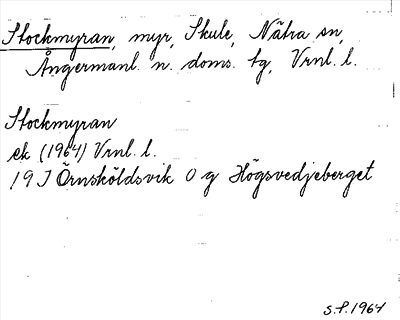 Stockmyran, myr, Skule, Nätra sn,
Ångermanl. n. doms. tg, Vrnl. l.
Stockmyran
ek (1964) Vrnl. l.
19 J Örnsköldsvik O g Högsvedjeberget
S.P. 1964